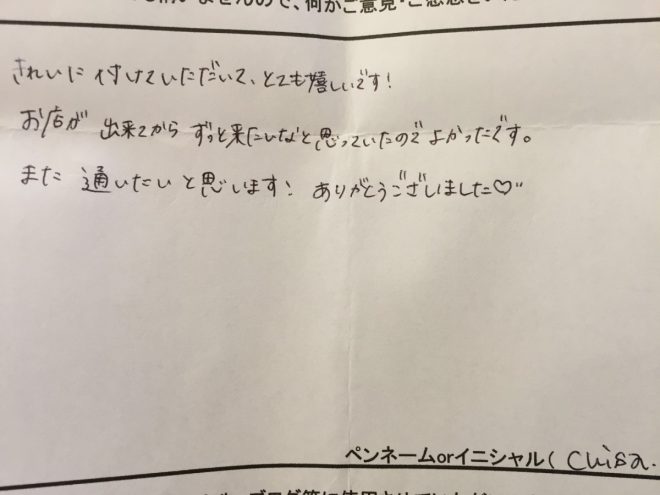 ませんので、何かご意見・ご感想を
きれいに付けていただいて、とても嬉しいです!
お店が出来てからずっと来たいなと思っていたのでよかったです。
また通いたいと思います! ありがとうございました♡
ペンネームorイニシャル( Chisa.